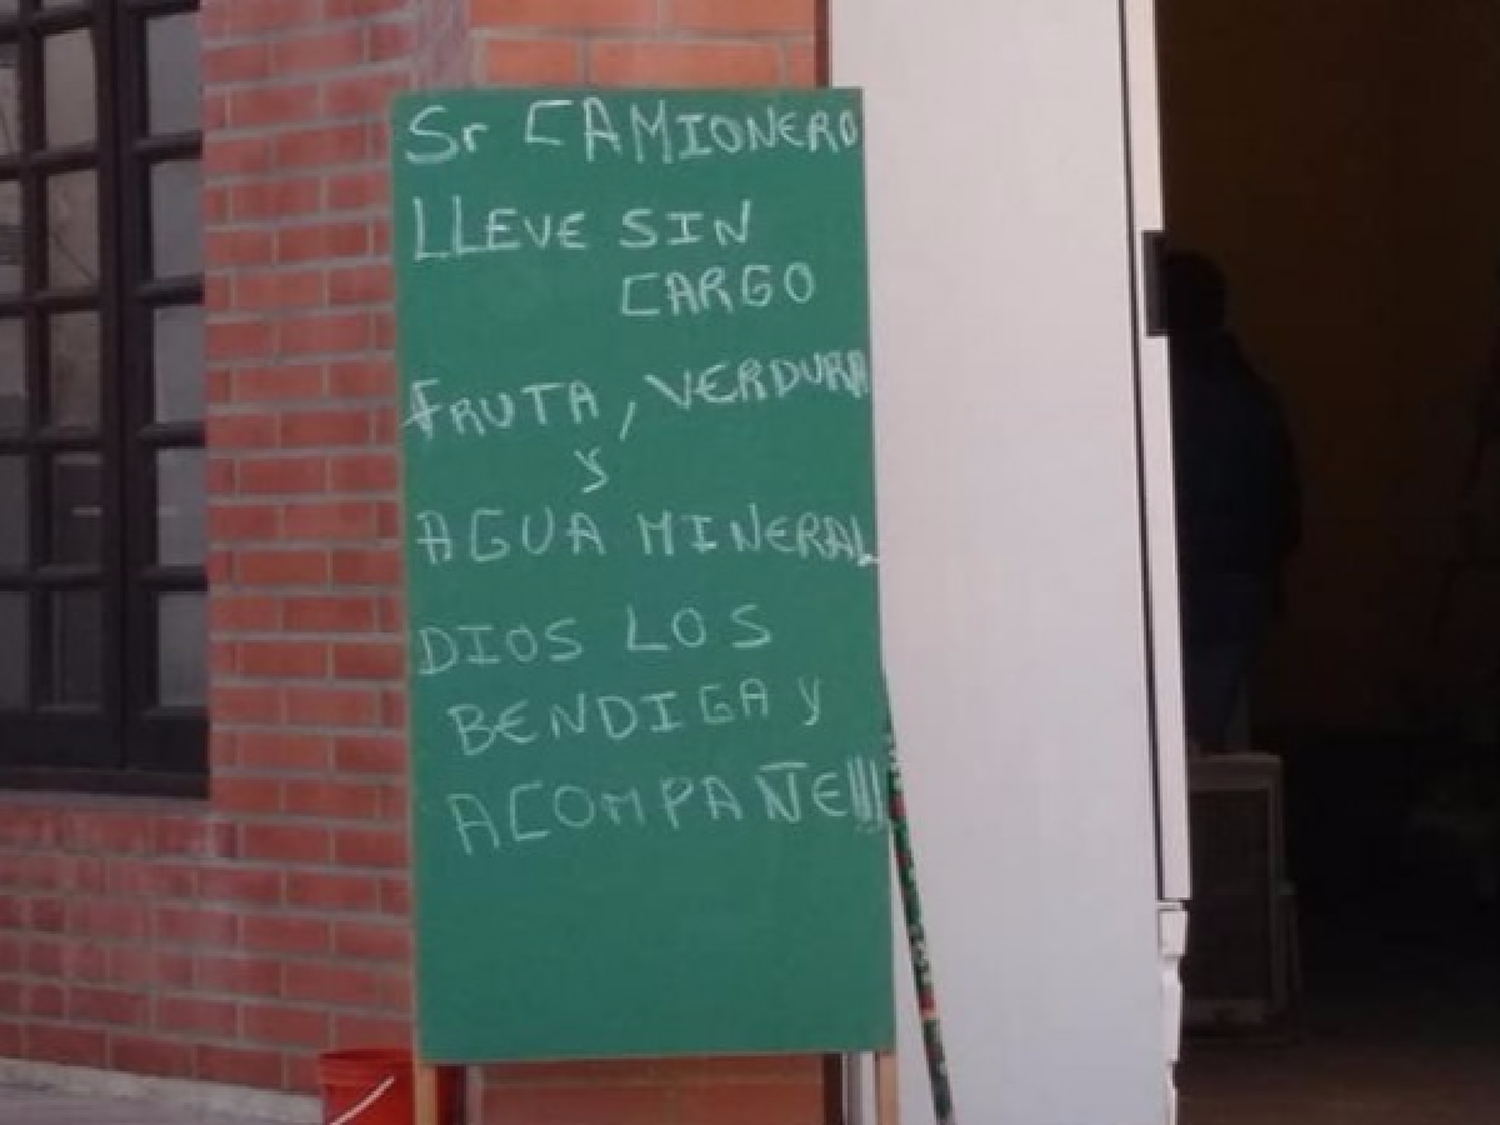 Sr CAMIONERO
LLEVE SIN
CARGO
FRUTA, VERDURA
y
AGUA MINERAL
DIOS LOS
BENDIGA y
ACOMPAÑE!!!